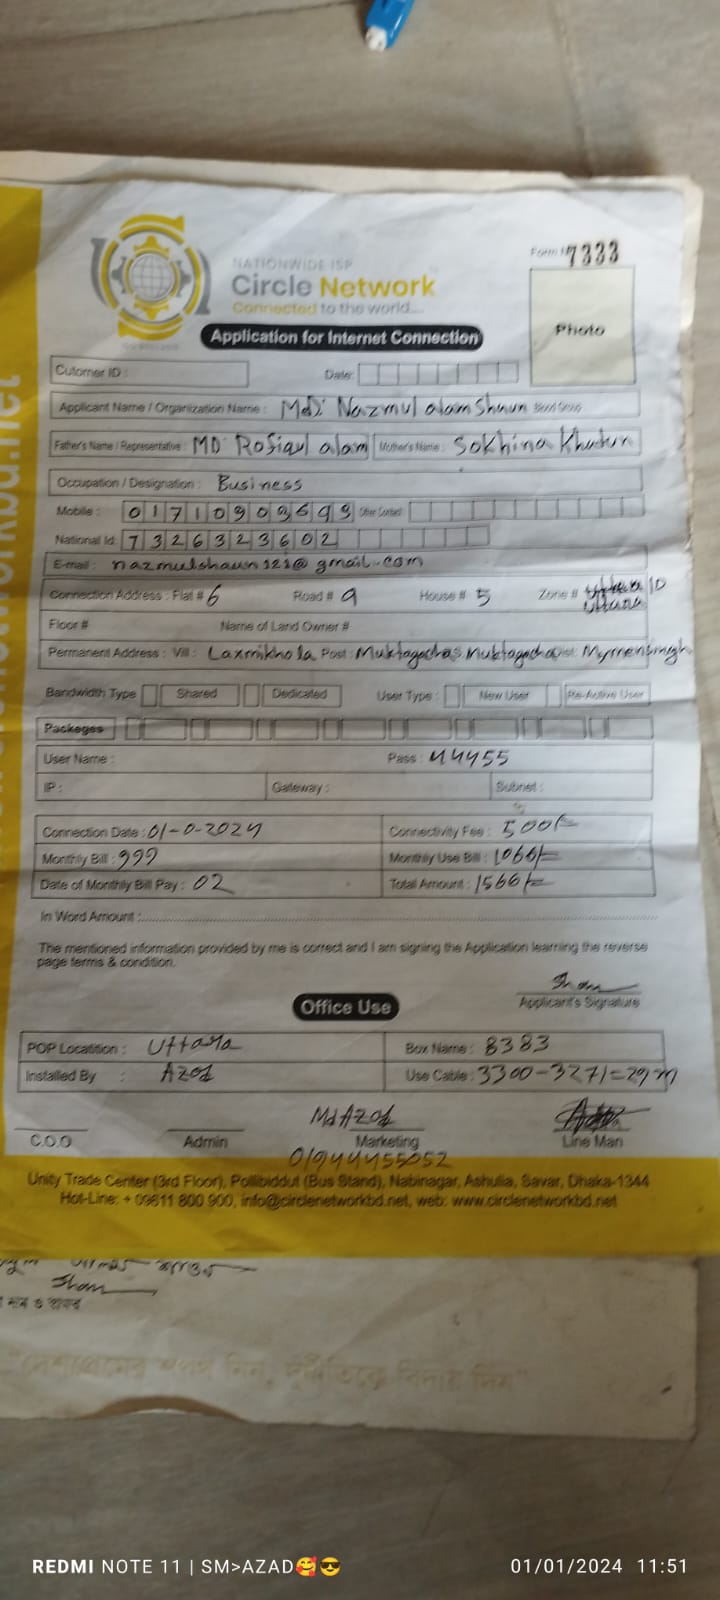 NATIONWIDE ISP
Circle Network
Connected to the world....
Form № 7333
Photo
Application for Internet Connection
Cutomer ID : Date:
Applicant Name / Organization Name : Md: Nazmul alam Shaun Blood Group
Father's Name / Representative : MD Rofiqul alam Mother's Name : Sokhina Khatun
Occupation / Designation : Business
Mobile : 01710909699 Other Contact
National Id: 7326323602
E-mail : nazmulshaun121@gmail.com
Connection Address : Flat # 6 Road # 9 House # 5 Zone # 10 Uttara
Floor # Name of Land Owner #
Permanent Address : Vill : Laxmikhola Post: Muktagacha Muktagacha Dist: Mymensingh
Bandwidth Type Shared Dedicated User Type : New User Re-Active User
Packages
User Name : Pass : 44455
IP : Gateway : Subnet :
Connection Date : 01-0-2024 Connectivity Fee : 500/-
Monthly Bill : 999 Monthly Use Bill : 1066/-
Date of Monthly Bill Pay : 02 Total Amount : 1566/-
In Word Amount :
The mentioned information provided by me is correct and I am signing the Application learning the reverse
page terms & condition.
Shaun
Applicant's Signature
Office Use
POP Locatition : Uttara Box Name : 8383
Installed By : Azad Use Cable : 3300-3271=29m
Md Azad
C.O.O Admin Marketing Line Man
01944455052
Unity Trade Center (3rd Floor), Pollibiddut (Bus Stand), Nabinagar, Ashulia, Savar, Dhaka-1344
Hot-Line: + 09611 800 900, info@circlenetworkbd.net, web: www.circlenetworkbd.net
Shaun
নাম ও স্বাক্ষর
"দেশপ্রেমের শপথ নিন, দুর্নীতিকে বিদায় দিন"
REDMI NOTE 11 | SM>AZAD🥰😎 01/01/2024 11:51